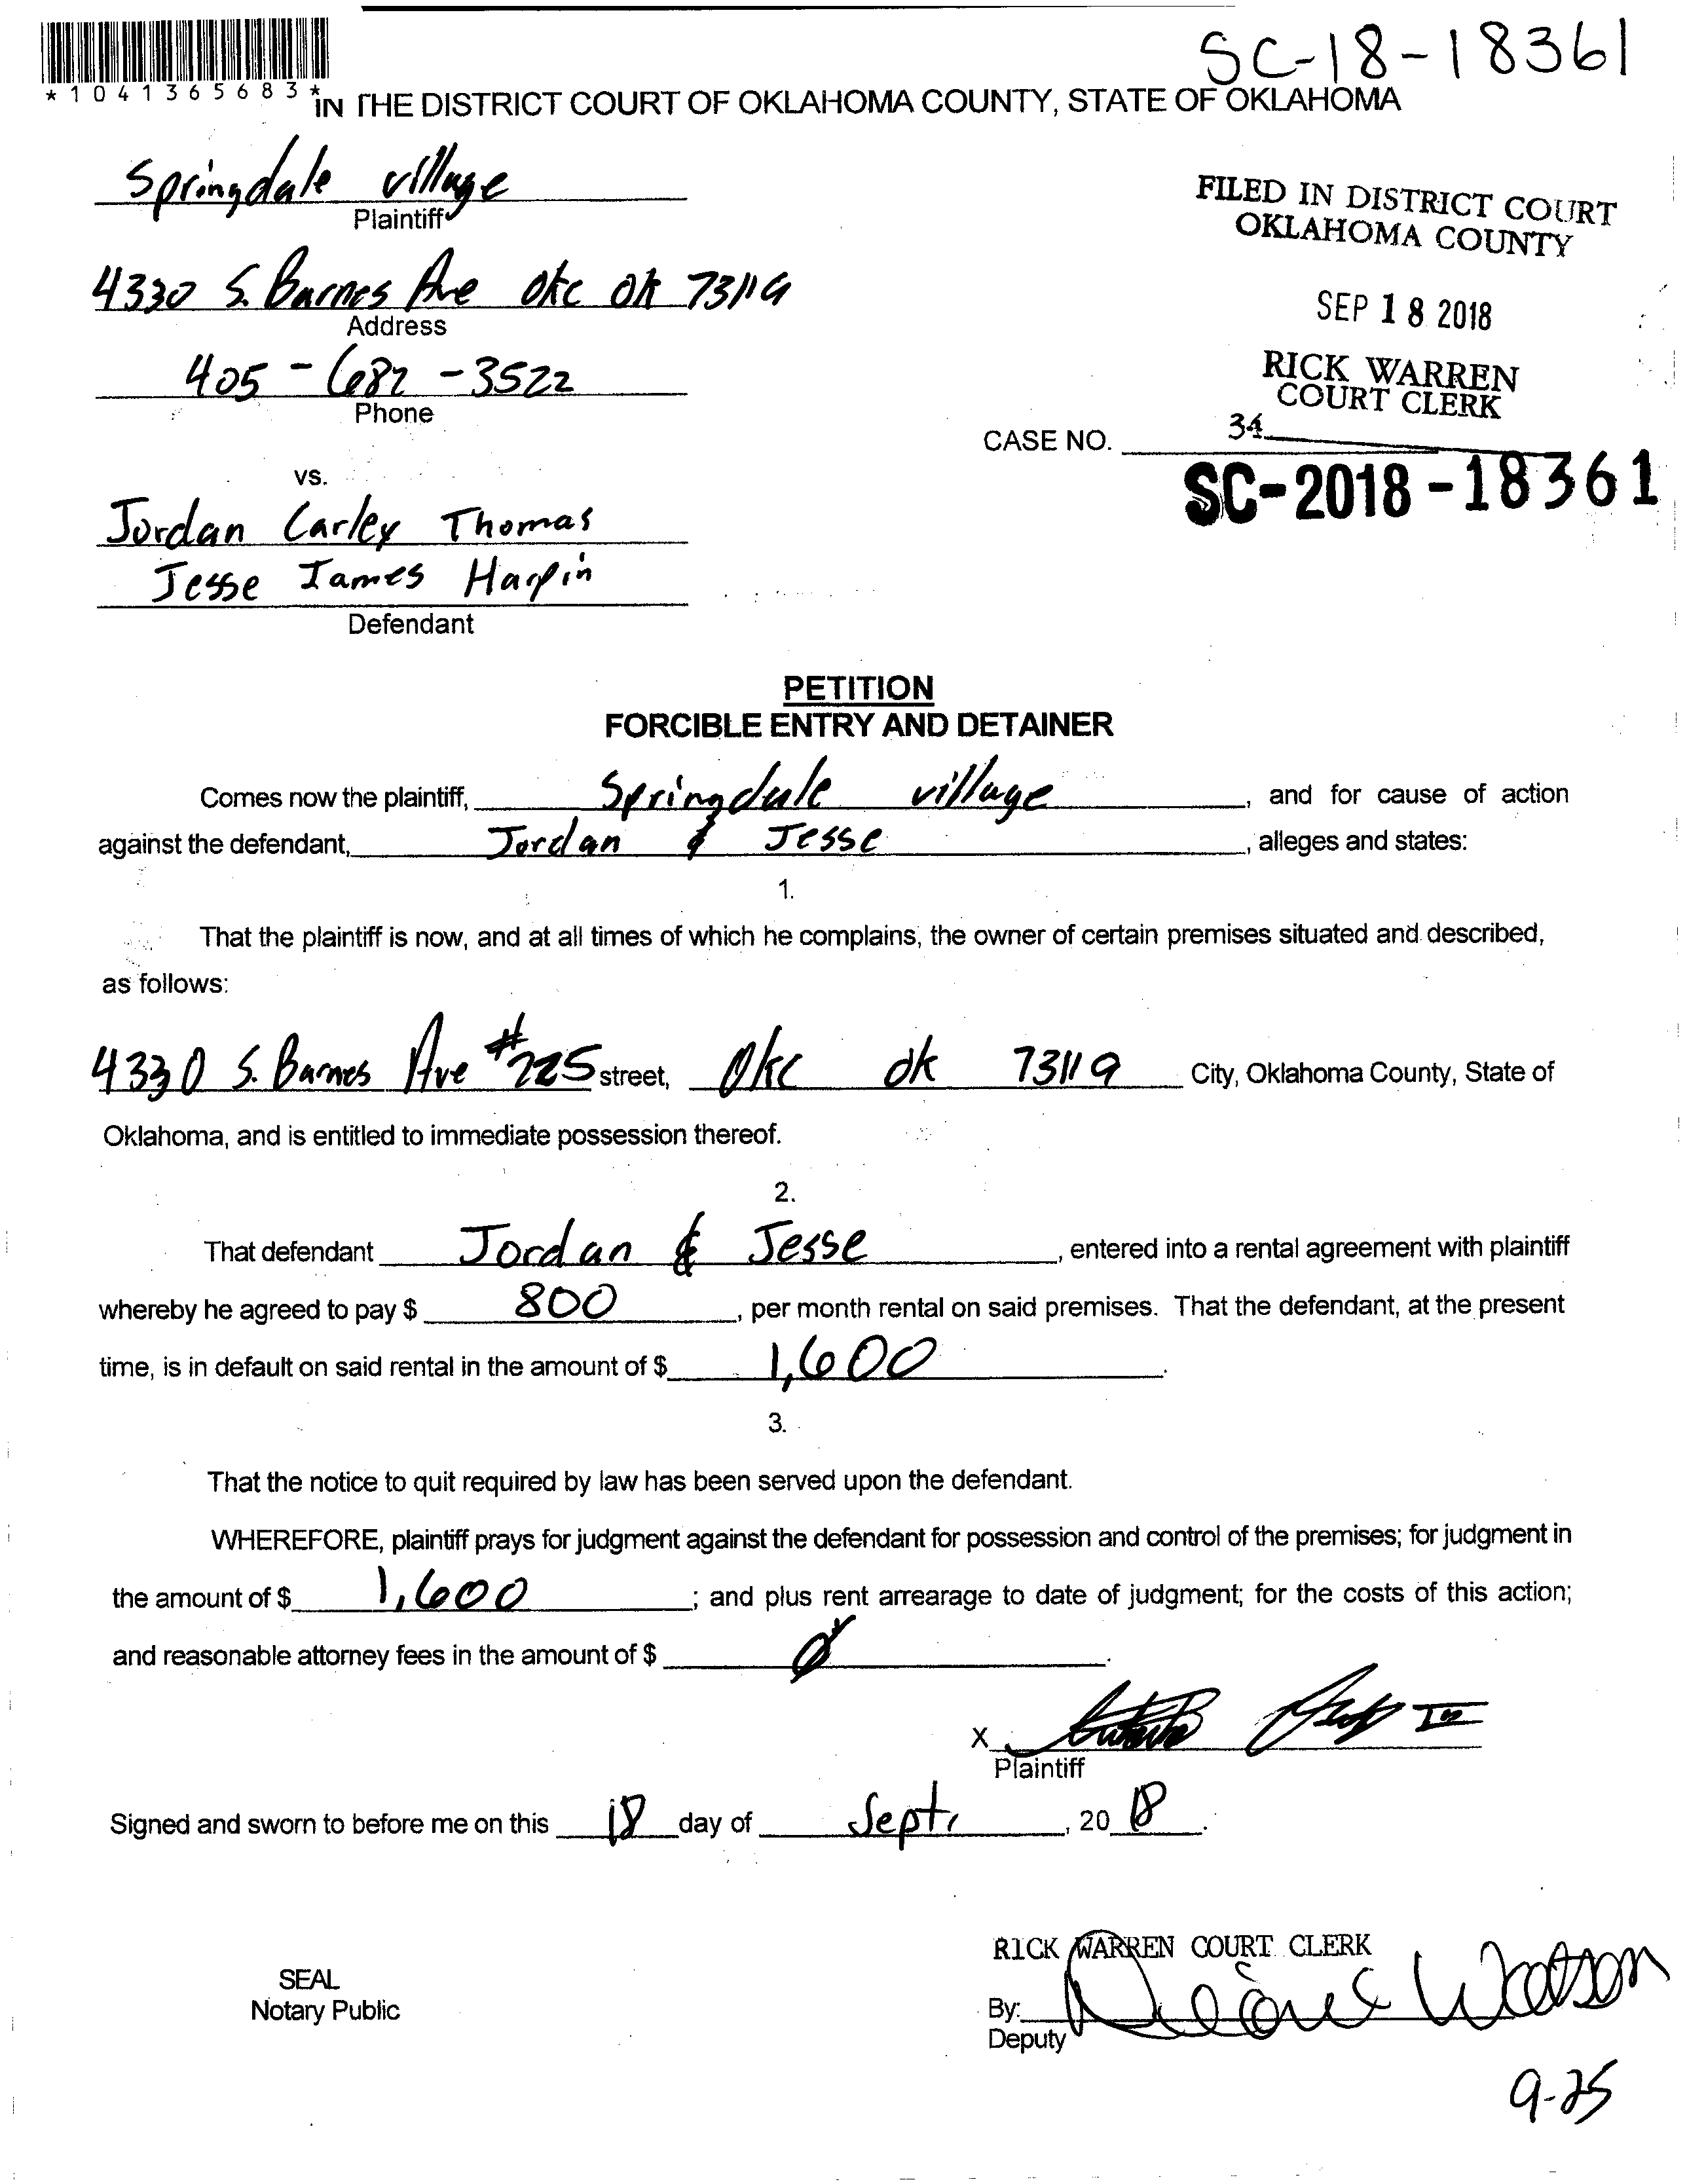 SC-18-18361
*1041365683*
IN THE DISTRICT COURT OF OKLAHOMA COUNTY, STATE OF OKLAHOMA
Springdale village
Plaintiff
FILED IN DISTRICT COURT
OKLAHOMA COUNTY
4330 S. Barnes Ave Okc Ok 73119
Address
SEP 18 2018
405-682-3522
Phone
RICK WARREN
COURT CLERK
34
CASE NO.
SC-2018-18361
vs.
Jordan Carley Thomas
Jesse James Harpin
Defendant
PETITION
FORCIBLE ENTRY AND DETAINER
Comes now the plaintiff, Springdale village, and for cause of action
against the defendant, Jordan & Jesse, alleges and states:
1.
That the plaintiff is now, and at all times of which he complains, the owner of certain premises situated and described,
as follows:
4330 S. Barnes Ave #225 street, Okc Ok 73119 City, Oklahoma County, State of
Oklahoma, and is entitled to immediate possession thereof.
2.
That defendant Jordan & Jesse, entered into a rental agreement with plaintiff
whereby he agreed to pay $ 800, per month rental on said premises. That the defendant, at the present
time, is in default on said rental in the amount of $ 1,600.
3.
That the notice to quit required by law has been served upon the defendant.
WHEREFORE, plaintiff prays for judgment against the defendant for possession and control of the premises; for judgment in
the amount of $ 1,600; and plus rent arrearage to date of judgment; for the costs of this action;
and reasonable attorney fees in the amount of $ Ø.
X
Plaintiff
Signed and sworn to before me on this 18 day of Sept, 2018.
RICK WARREN COURT CLERK
SEAL
Notary Public
By: Watson
Deputy
9-25